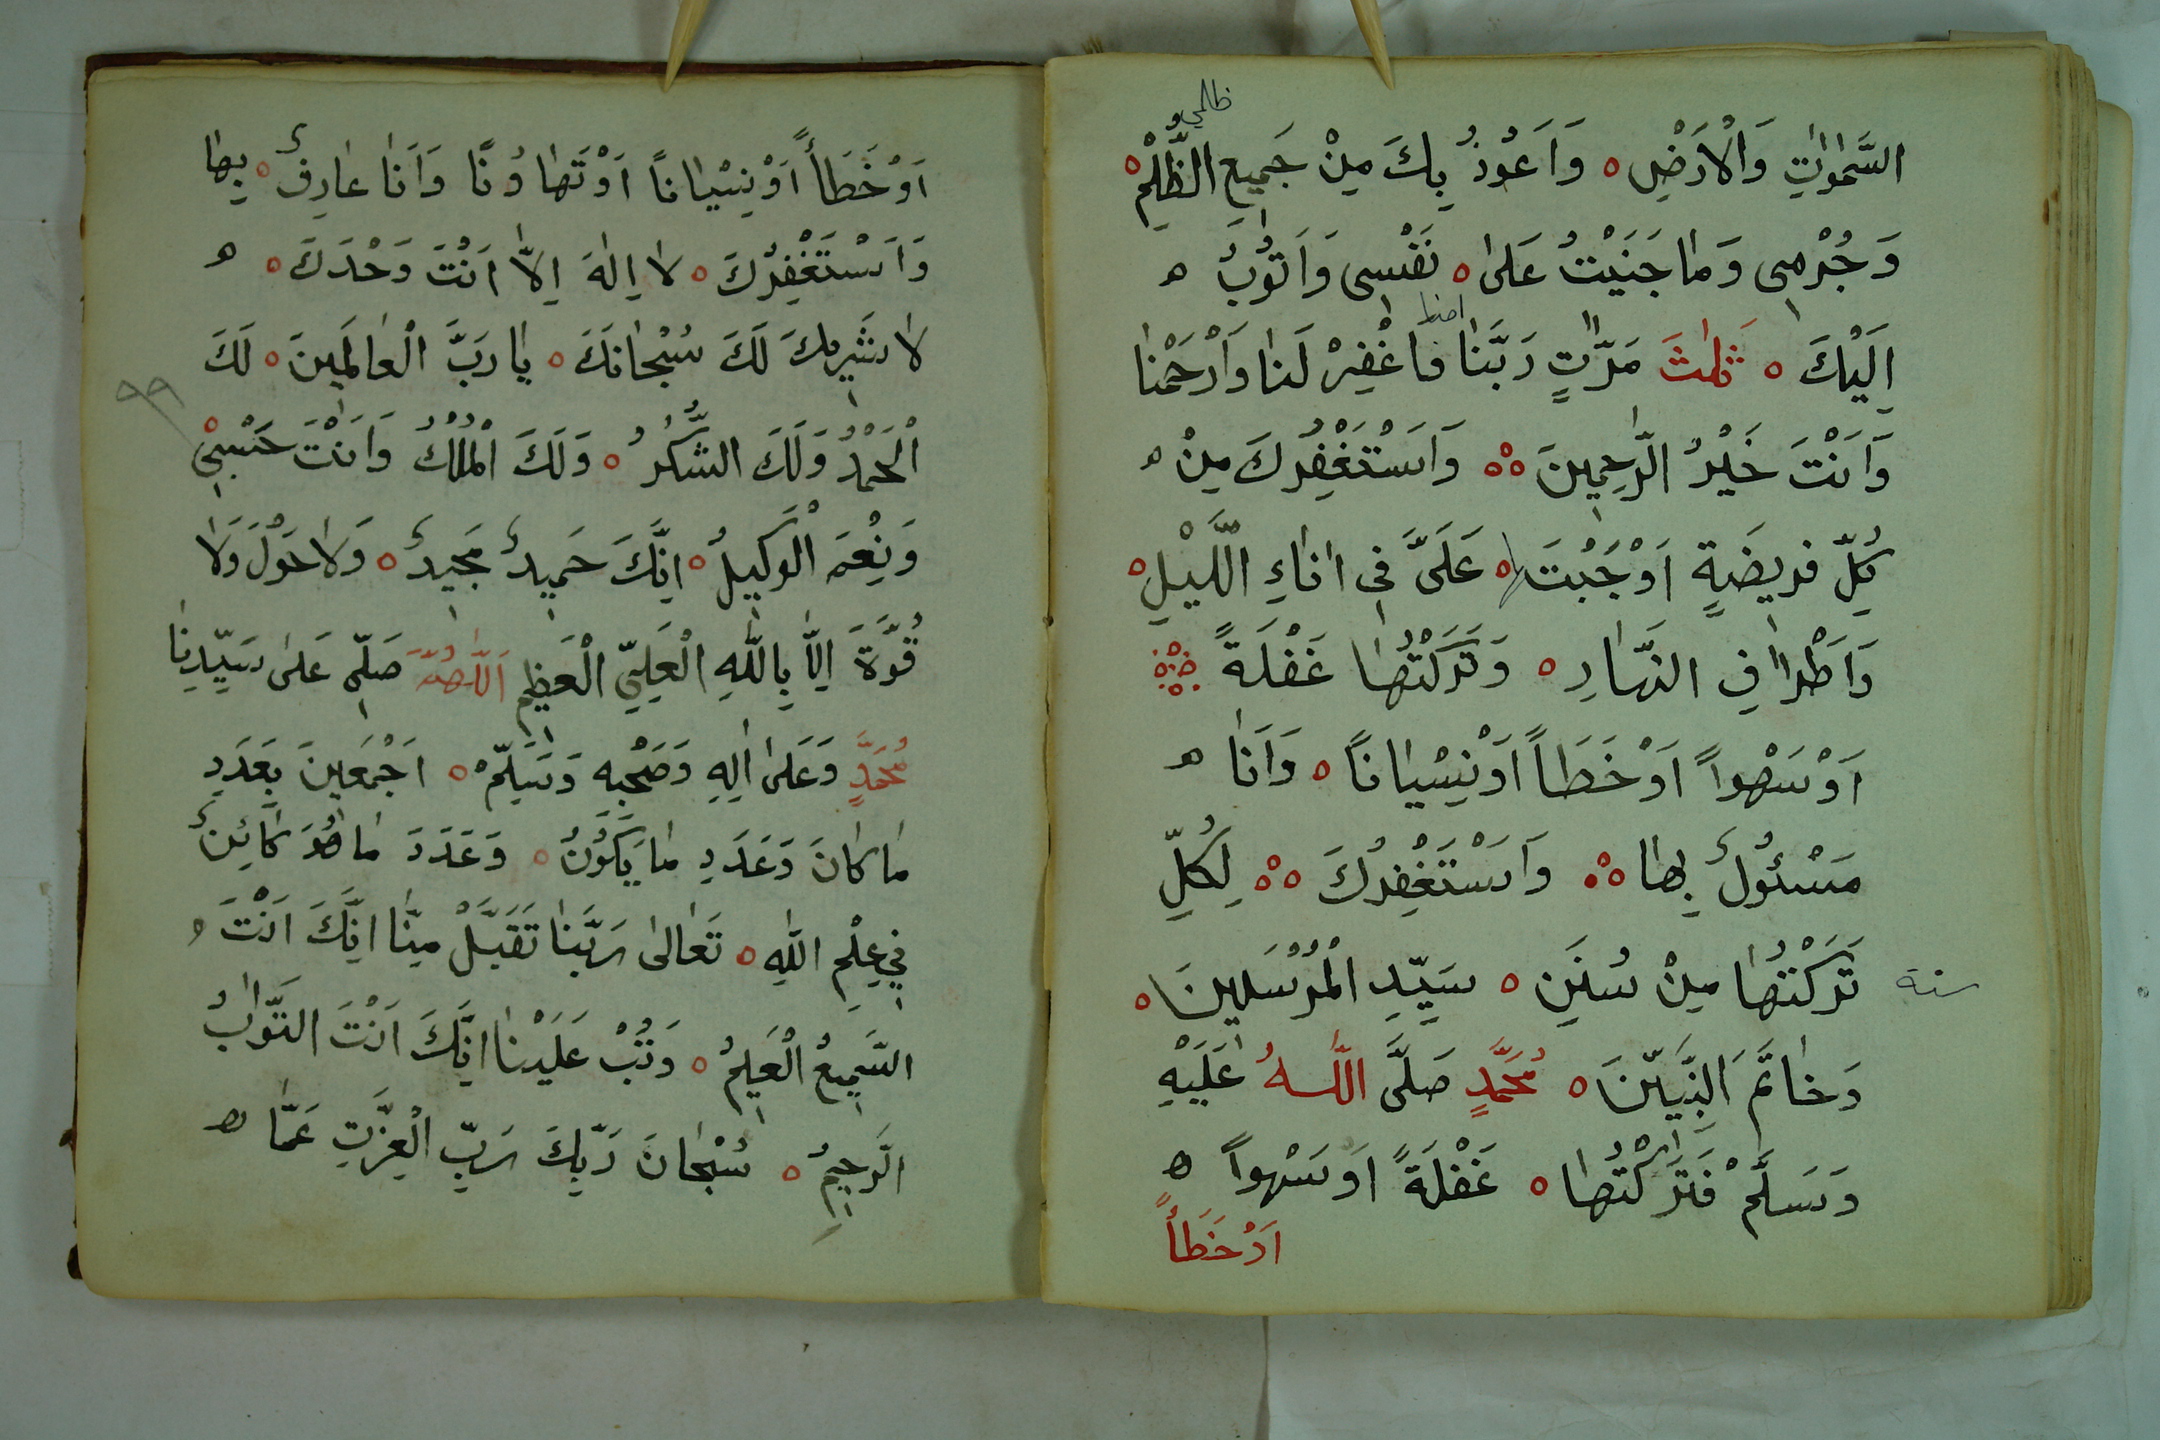 ظالمي
السَّمٰوٰاتِ وَالْاَرْضِ ه وَاَعُوذُ بِكَ مِنْ جَمِيعِ الظُّلْمِ ه
وَجُرْمِى وَمٰا جَنَيْتُ عَلىٰ ه نَفْسِى وَاَتُوبُ ه
اِلَيْكَ ه ثَلٰثَ مَرّٰاتٍ رَبَّنٰا فَاغْفِرْ لَنٰا وَارْحَمْنٰا
وَاَنْتَ خَيْرُ الرّٰحِمِينَ ه ه وَاَسْتَغْفِرُكَ مِنْ ه
كُلِّ فريضَةٍ اَوْجَبْتَها ه عَلَىَّ فِى اٰنٰاءِ اللَّيْلِ ه
وَاَطْرٰافِ النَّهٰارِ ه وَتَرَكْتُهٰا غَفْلَةً
اَوْ سَهْواً اَوْ خَطَاً اَوْ نِسْيٰانًا ه وَاَنٰا ه
مَسْئُولٌ بِهٰا ه ه وَاَسْتَغْفِرُكَ ه ه لِكُلِّ
تَرَكْتُهٰا مِنْ سُنَنِ ه سَيِّدِ الْمُرْسَلِينَ ه
سنة
وَخٰاتَمَ النَّبِيّٖنَ ه مُحَمَّدٍ صَلَّى اللّٰهُ عَلَيْهِ
وَسَلَّمْ فَتَرَكْتُهٰا ه غَفْلَةً اَوْ سَهْواً ه
اَوْ خَطَأً
اَوْ خَطَأً اَوْ نِسْيٰاناً اَوْ تَهٰاوُنًا وَاَنٰا عٰارِفٌ ه بِهٰا
وَاَسْتَغْفِرُكَ ه لٰا اِلٰهَ اِلّٰا اَنْتَ وَحْدَكَ ه ه
لٰا شَرِيكَ لَكَ سُبْحٰانَكَ ه يٰا رَبَّ الْعٰالَمِينَ ه لَكَ
الْحَمْدُ وَلَكَ الشُّكْرُ ه وَلَكَ الْمُلْكُ وَاَنْتَ حَسْبِىْ
٩٩
وَنِعْمَ الْوَكِيلُ ه اِنَّكَ حَمِيدٌ مَجِيدٌ ه وَلٰا حَوْلَ وَلٰا
قُوَّةَ اِلّٰا بِاللّٰهِ الْعَلِيِّ الْعَظِيمِ اَللّٰهُمَّ صَلِّ عَلىٰ سَيِّدِنٰا
مُحَمَّدٍ وَعَلىٰ اٰلِهِ وَصَحْبِهِ وَسَلِّمْ ه اَجْمَعِينَ بِعَدَدِ
مٰا كٰانَ وَعَدَدِ مٰا يَكُونُ ه وَعَدَدَ مٰا هُوَ كٰائِنٌ
فِي عِلْمِ اللّٰهِ ه تَعٰالىٰ رَبَّنٰا تَقَبَّلْ مِنّٰا اِنَّكَ اَنْتَ ه
السَّمِيعُ الْعَلِيمُ ه وَتُبْ عَلَيْنٰا اِنَّكَ اَنْتَ التَّوّٰابُ
الرَّحِيمُ ه سُبْحٰانَ رَبِّكَ رَبِّ الْعِزَّتِ عَمّٰا ه